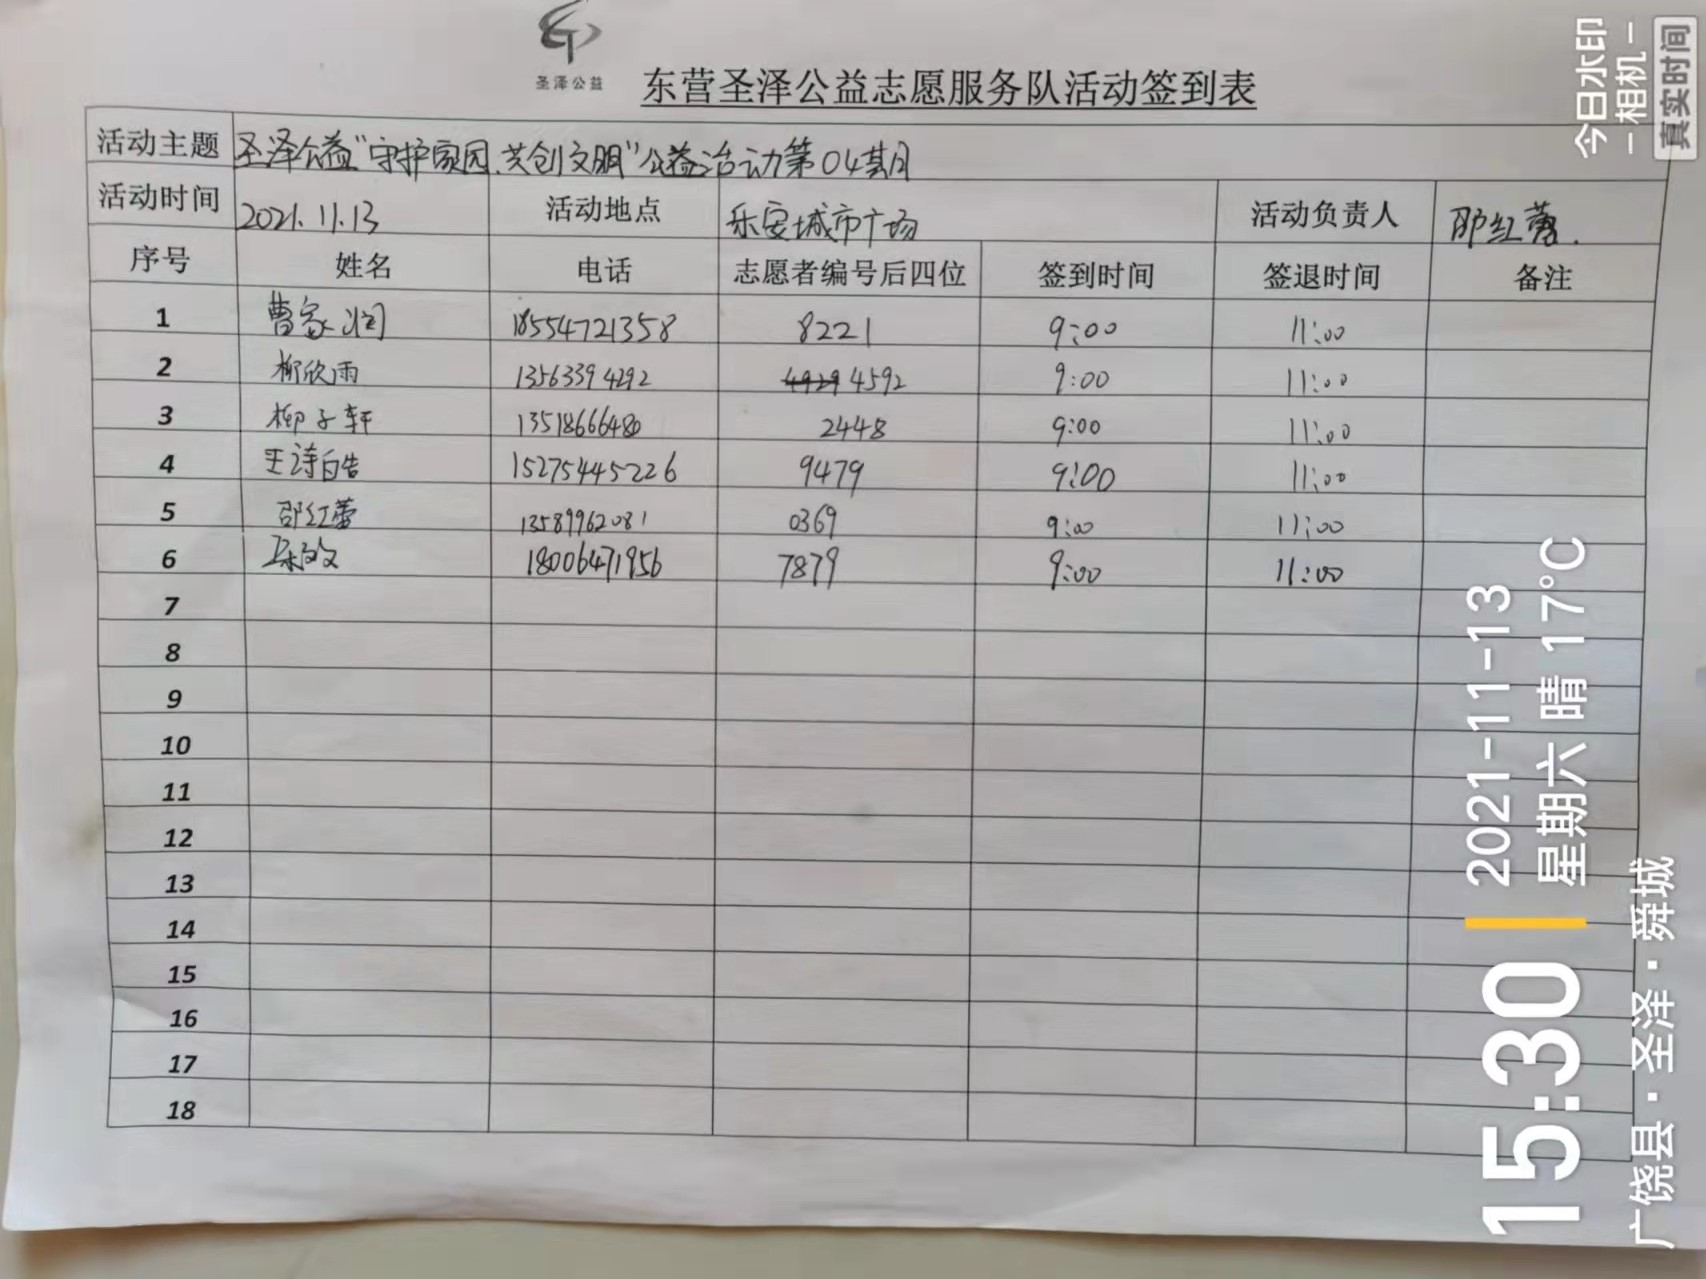 圣泽公益
东营圣泽公益志愿服务队活动签到表
活动主题 圣泽公益"守护家园、共创文明"公益活动第04期
活动时间 2021.11.13 活动地点 乐安城市广场 活动负责人 邵红蕾.
序号 姓名 电话 志愿者编号后四位 签到时间 签退时间 备注
1 曹家润 18554721358 8221 9:00 11:00
2 柳欣雨 13563394292 4592 9:00 11:00
3 柳子轩 13518666480 2448 9:00 11:00
4 王诗皓 15275445226 9479 9:00 11:00
5 邵红蕾 13589962081 0369 9:00 11:00
6 18006471956 7879 9:00 11:00
7
8
9
10
11
12
13
14
15
16
17
18
今日水印
-相机-
真实时间
15:30
2021-11-13
星期六 晴 17°C
广饶县·圣泽·舜城